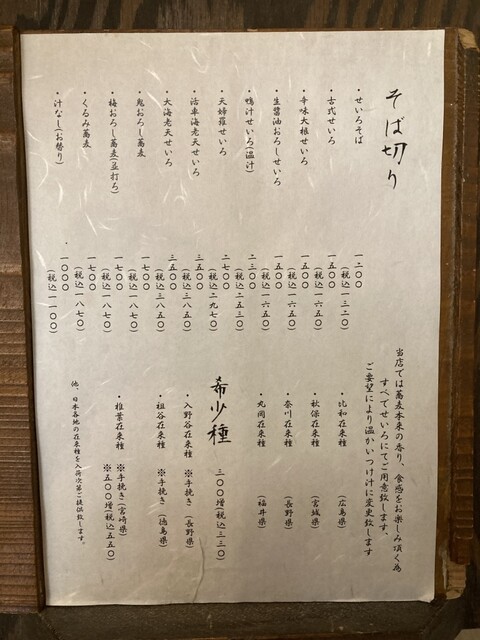 そば切り
・せいろそば 一二〇〇
(税込一三二〇)
・古式せいろ 一五〇〇
(税込一六五〇)
・辛味大根せいろ 一五〇〇
(税込一六五〇)
・生醤油おろしせいろ 一五〇〇
(税込一六五〇)
・鴨汁せいろ(温汁) 二三〇〇
(税込二五三〇)
・天婦羅せいろ 二七〇〇
(税込二九七〇)
・活車海老天せいろ 三五〇〇
(税込三八五〇)
・大海老天せいろ 三五〇〇
(税込三八五〇)
・鬼おろし蕎麦 一七〇〇
(税込一八七〇)
・梅おろし蕎麦 一七〇〇
(税込一八七〇)
・くるみ蕎麦 一七〇〇
(税込一八七〇)
・汁なし(お替り) 一〇〇〇
(税込一一〇〇)
当店では蕎麦本来の香り、食感をお楽しみ頂く為
すべてせいろにてご用意致します。
ご要望により温かいつけ汁に変更致します
・比和在来種 (広島県)
・秋保在来種 (宮城県)
・奈川在来種 (長野県)
・丸岡在来種 (福井県)
希少種 三〇〇増(税込三三〇)
・入野谷在来種 ※手挽き (長野県)
・祖谷在来種 ※手挽き (徳島県)
・椎葉在来種 ※手挽き (宮崎県)
※五〇〇増(税込五五〇)
他、日本各地の在来種を入荷次第ご提供致します。